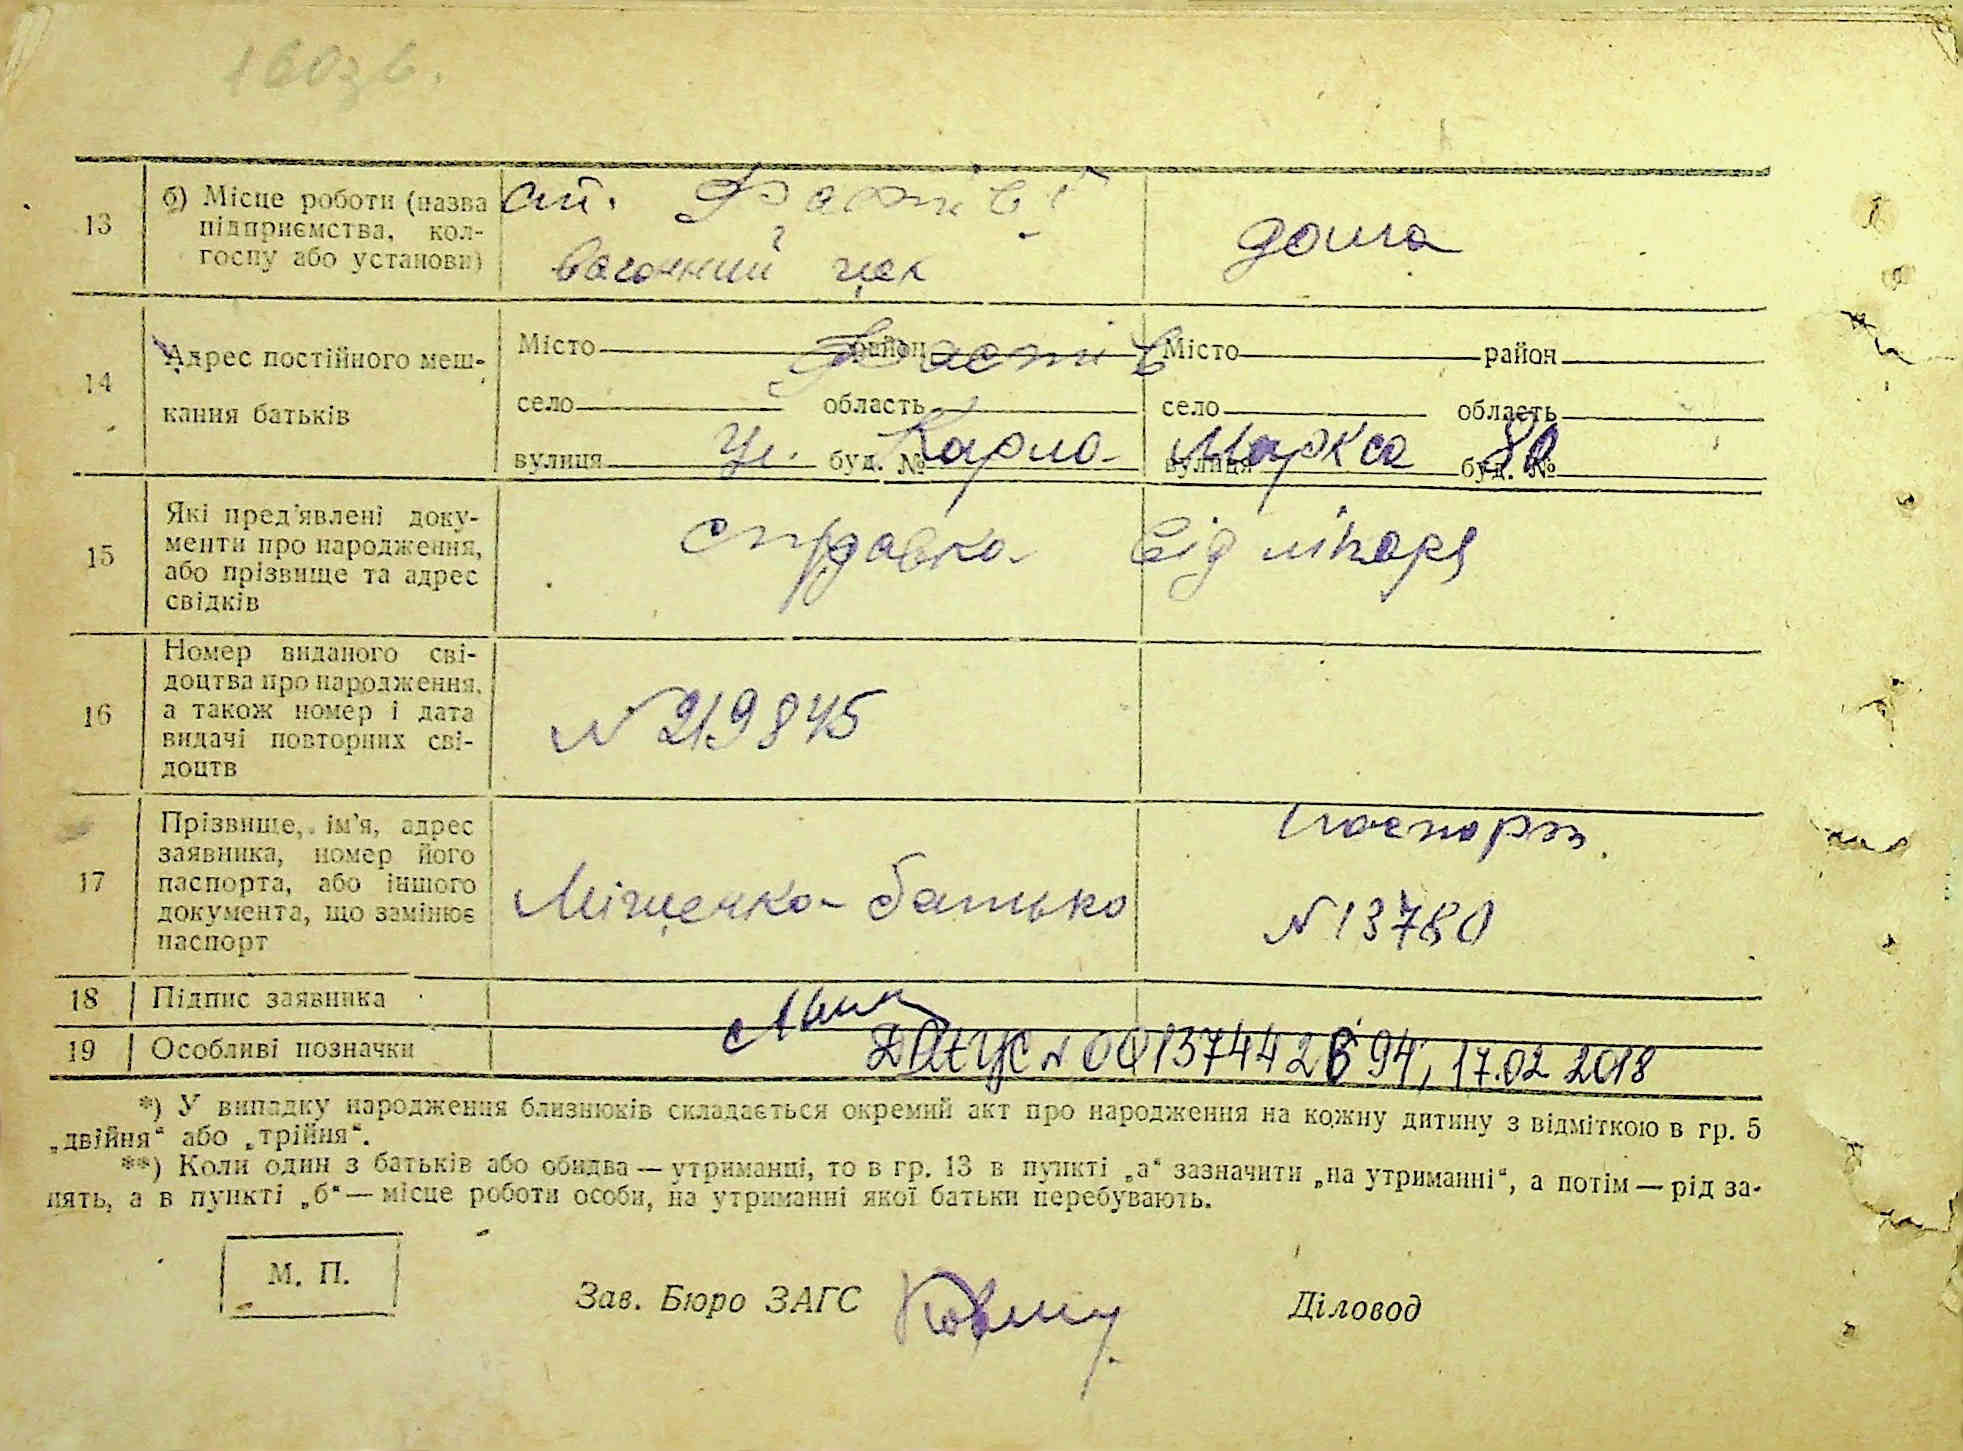 160 зв.
13 б) Місце роботи (назва підприємства, кол-госпу або установи)
ст. Фастів I
вагонний цех
дома
14 Адрес постійного меш-
кання батьків
Місто район Місто район
Фастів
село область село область
вулиця буд. № вулиця буд. №
ул. Карла Маркса 80
15 Які пред'явлені доку-
менти про народження,
або прізвище та адрес
свідків
справка від лікаря
16 Номер виданого сві-
доцтва про народження,
а також номер і дата
видачі повторних сві-
доцтв
№ 219845
17 Прізвище, ім'я, адрес
заявника, номер його
паспорта, або іншого
документа, що замінює
паспорт
Міщенко - батько
паспорт
№ 13780
18 Підпис заявника
19 Особливі позначки
ДРАЦС № 00137442694, 17.02 2018
*) У випадку народження близнюків складається окремий акт про народження на кожну дитину з відміткою в гр. 5
„двійня“ або „трійня“.
**) Коли один з батьків або обидва — утриманці, то в гр. 13 в пункті „а“ зазначити „на утриманні“, а потім — рід за-
нять, а в пункті „б“ — місце роботи особи, на утриманні якої батьки перебувають.
М. П.
Зав. Бюро ЗАГС
Діловод